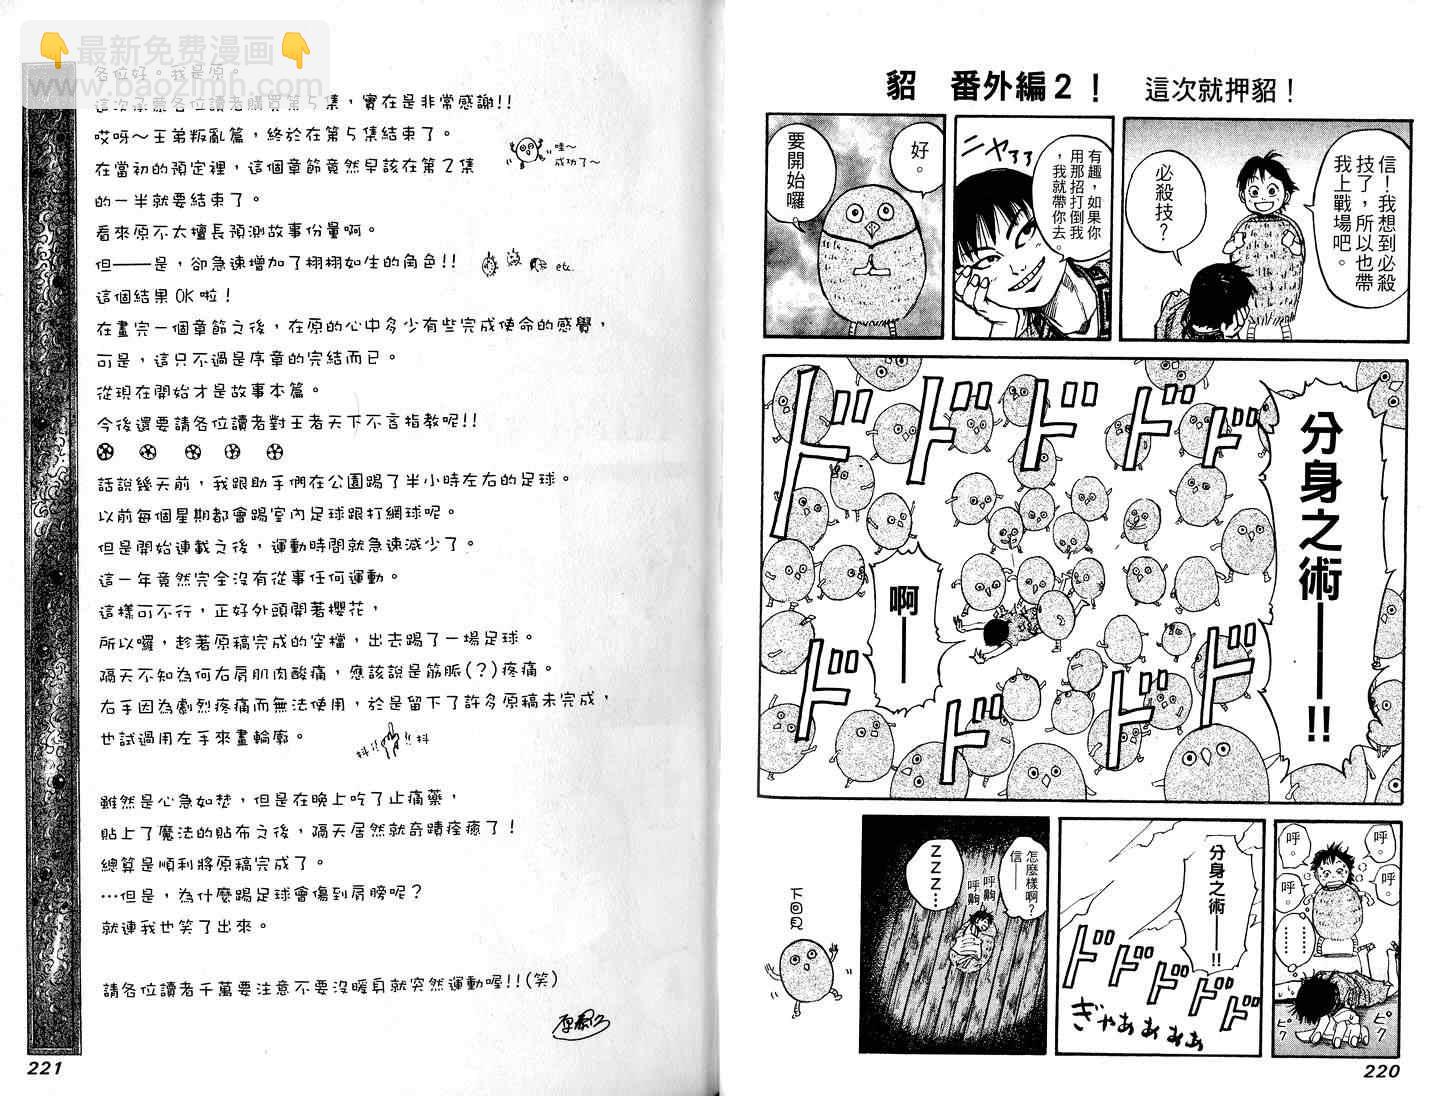 貂 番外編2！ 這次就押貂！
信！我想到必殺
技了，所以也帶
我上戰場吧。
必殺技？
有趣，如果你
用那招打倒我
，我就帶你去。
ニヤァァ
好。
要開始囉
分身之術——!!
啊——
ドドドドドド
ドドドド
呼。
呼。
呼。
呼。
………
ピク
ピク
分身之術——!!
ドドドドド
ぎゃああぁぁぁ
怎麼樣啊？
信——
呼齁
呼齁
ZZZ…
下回見
220
最新免费漫画
www.baozimh.com
各位好。我是原。
這次承蒙各位讀者購買第5集，實在是非常感謝!!
哎呀～王弟叛亂篇，終於在第5集結束了。
哇～
成功了～
在當初的預定裡，這個章節竟然早該在第2集
的一半就要結束了。
看來原不太擅長預測故事份量啊。
但——是，卻急速增加了栩栩如生的角色!! etc.
這個結果OK啦！
在畫完一個章節之後，在原的心中多少有些完成使命的感覺，
可是，這只不過是序章的完結而已。
從現在開始才是故事本篇。
今後還要請各位讀者對王者天下不吝指教呢!!
話說幾天前，我跟助手們在公園踢了半小時左右的足球。
以前每個星期都會踢室內足球跟打網球呢。
但是開始連載之後，運動時間就急速減少了。
這一年竟然完全沒有從事任何運動。
這樣可不行，正好外頭開著櫻花，
所以囉，趁著原稿完成的空檔，出去踢了一場足球。
隔天不知為何右肩肌肉酸痛，應該說是筋脈(?)疼痛。
右手因為劇烈疼痛而無法使用，於是留下了許多原稿未完成，
也試過用左手來畫輪廓。
抖!! !!抖
雖然是心急如焚，但是在晚上吃了止痛藥，
貼上了魔法的貼布之後，隔天居然就奇蹟痊癒了！
總算是順利將原稿完成了。
…但是，為什麼踢足球會傷到肩膀呢？
就連我也笑了出來。
請各位讀者千萬要注意不要沒暖身就突然運動喔!!(笑)
221